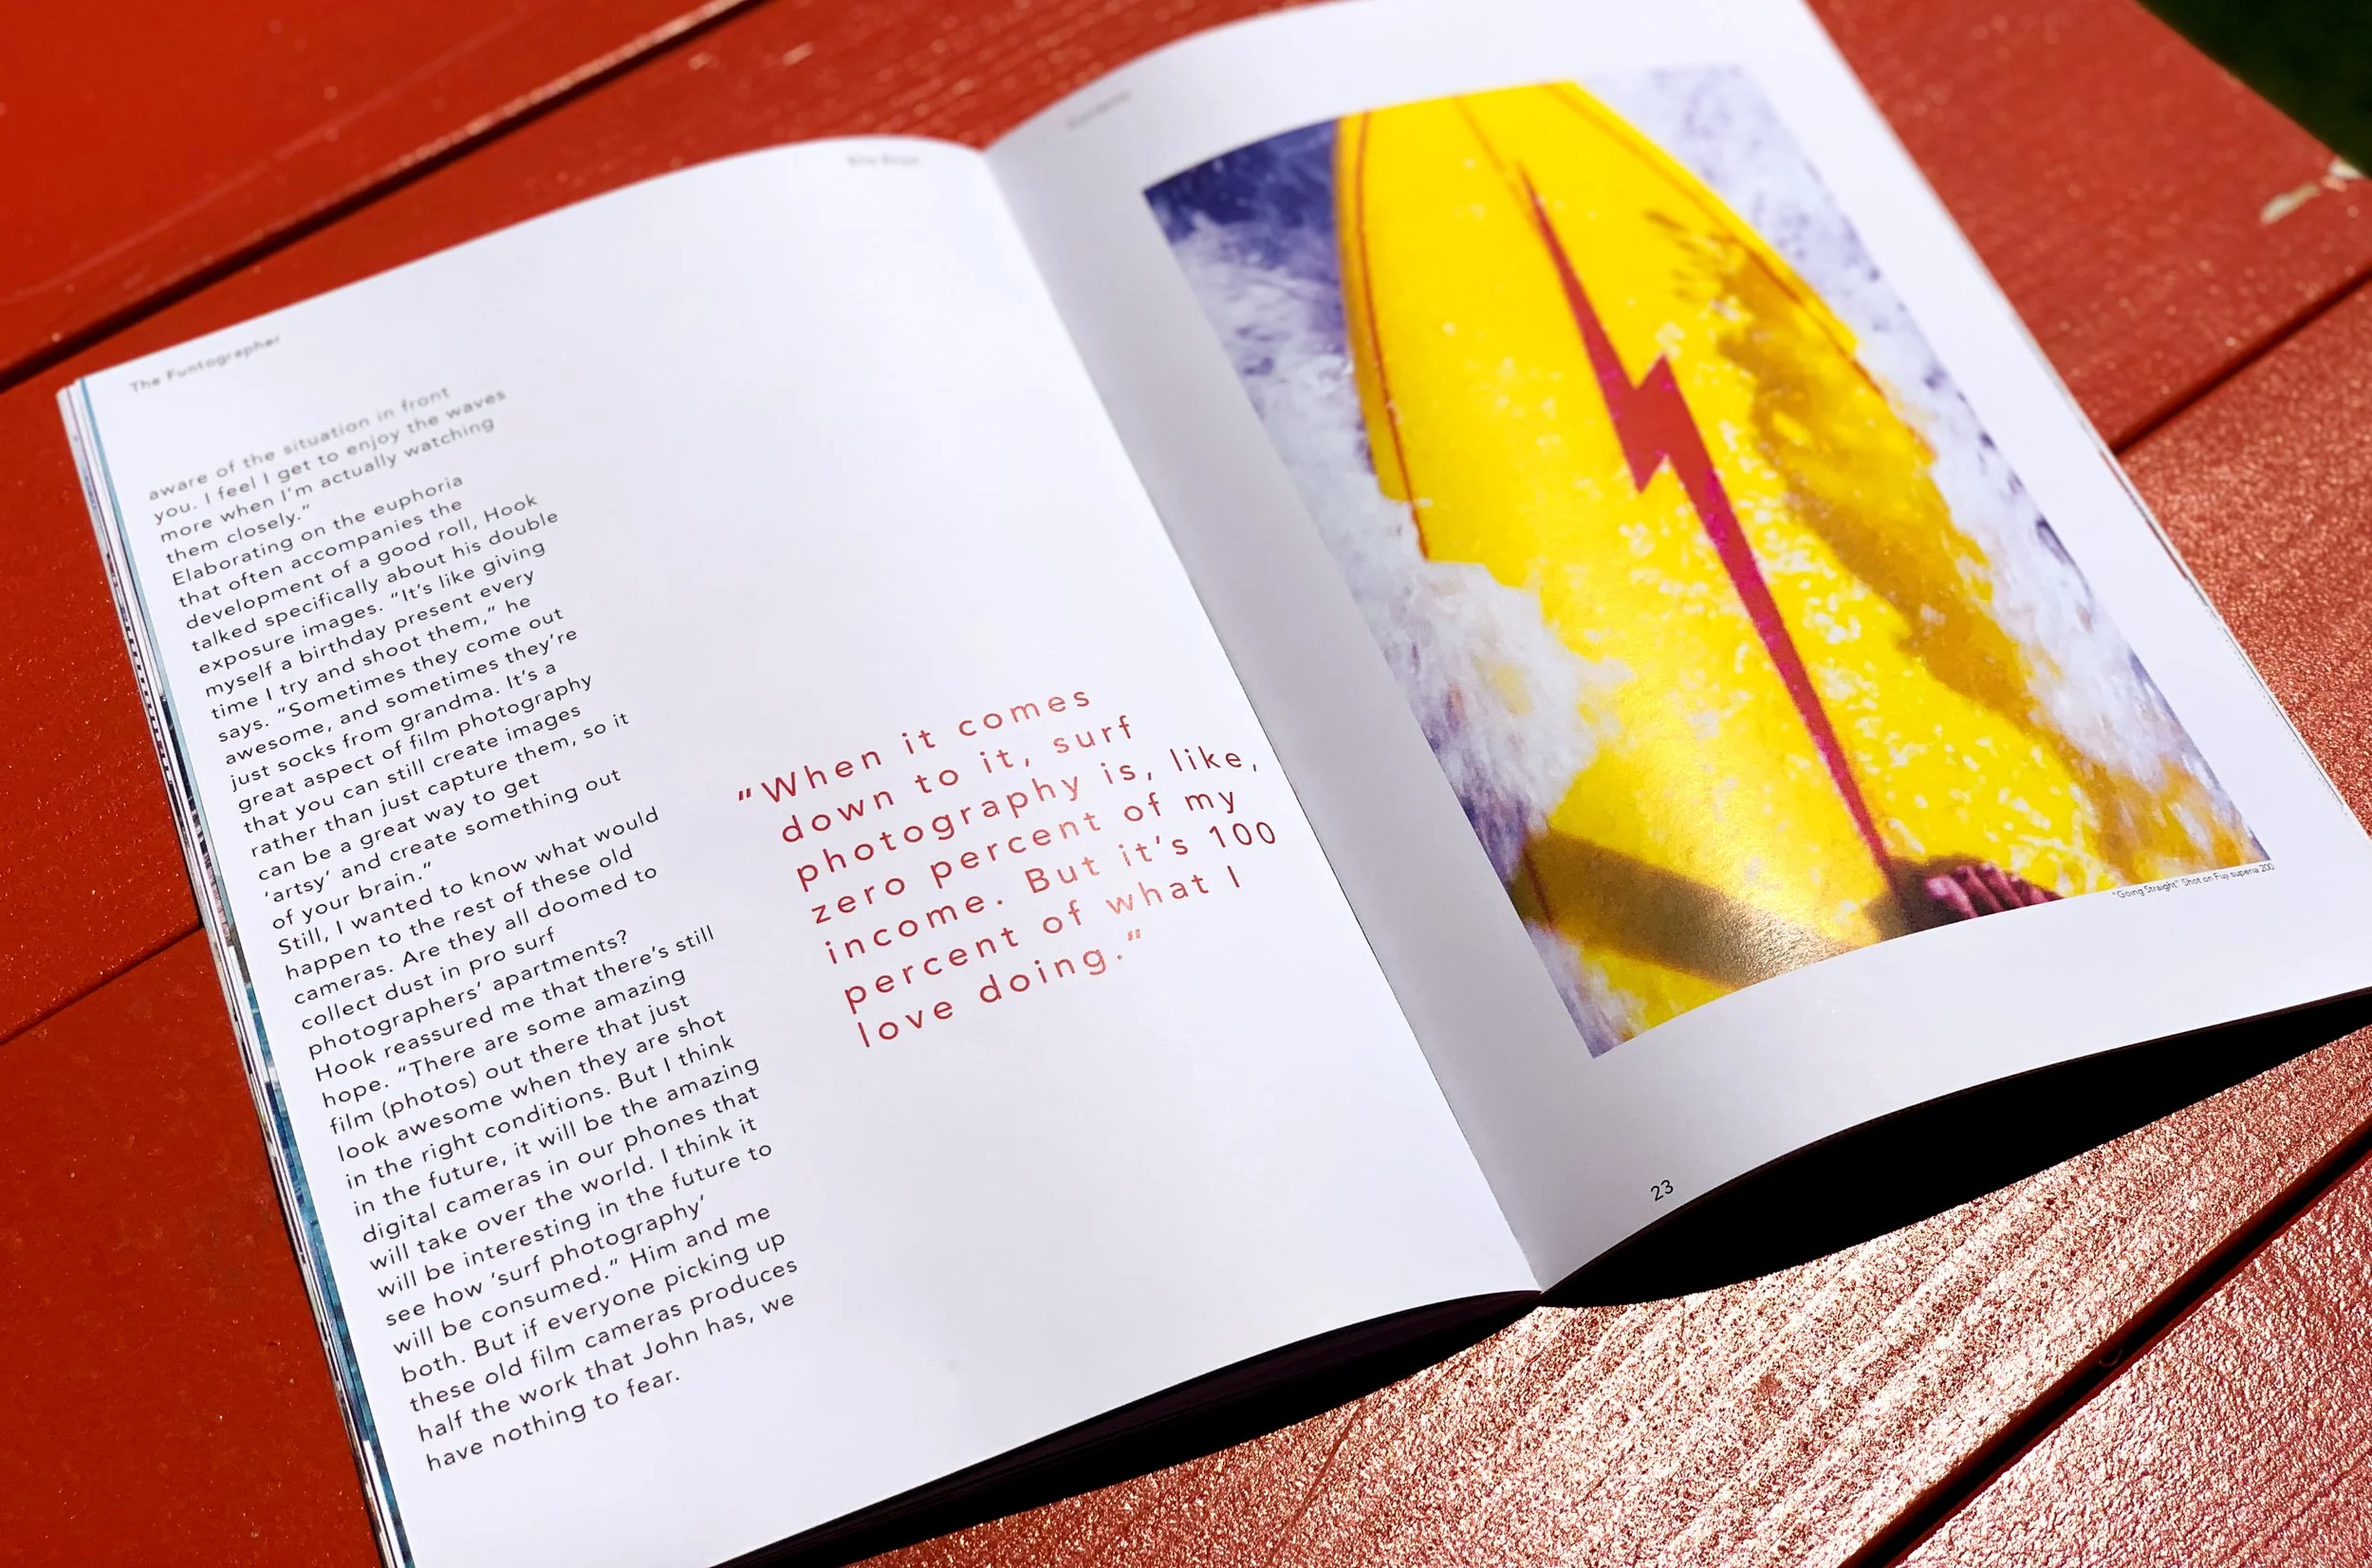 The Funtographer
aware of the situation in front
you. I feel I get to enjoy the waves
more when I'm actually watching
them closely."
Elaborating on the euphoria
that often accompanies the
development of a good roll, Hook
talked specifically about his double
exposure images. "It's like giving
myself a birthday present every
time I try and shoot them," he
says. "Sometimes they come out
awesome, and sometimes they're
just socks from grandma. It's a
great aspect of film photography
that you can still create images
rather than just capture them, so it
can be a great way to get
'artsy' and create something out
of your brain."
Still, I wanted to know what would
happen to the rest of these old
cameras. Are they all doomed to
collect dust in pro surf
photographers' apartments?
Hook reassured me that there's still
hope. "There are some amazing
film (photos) out there that just
look awesome when they are shot
in the right conditions. But I think
in the future, it will be the amazing
digital cameras in our phones that
will take over the world. I think it
will be interesting in the future to
see how 'surf photography'
will be consumed." Him and me
both. But if everyone picking up
these old film cameras produces
half the work that John has, we
have nothing to fear.
"When it comes
down to it, surf
photography is, like,
zero percent of my
income. But it's 100
percent of what I
love doing."
"Going Straight" Shot on Fuji superia 200
23